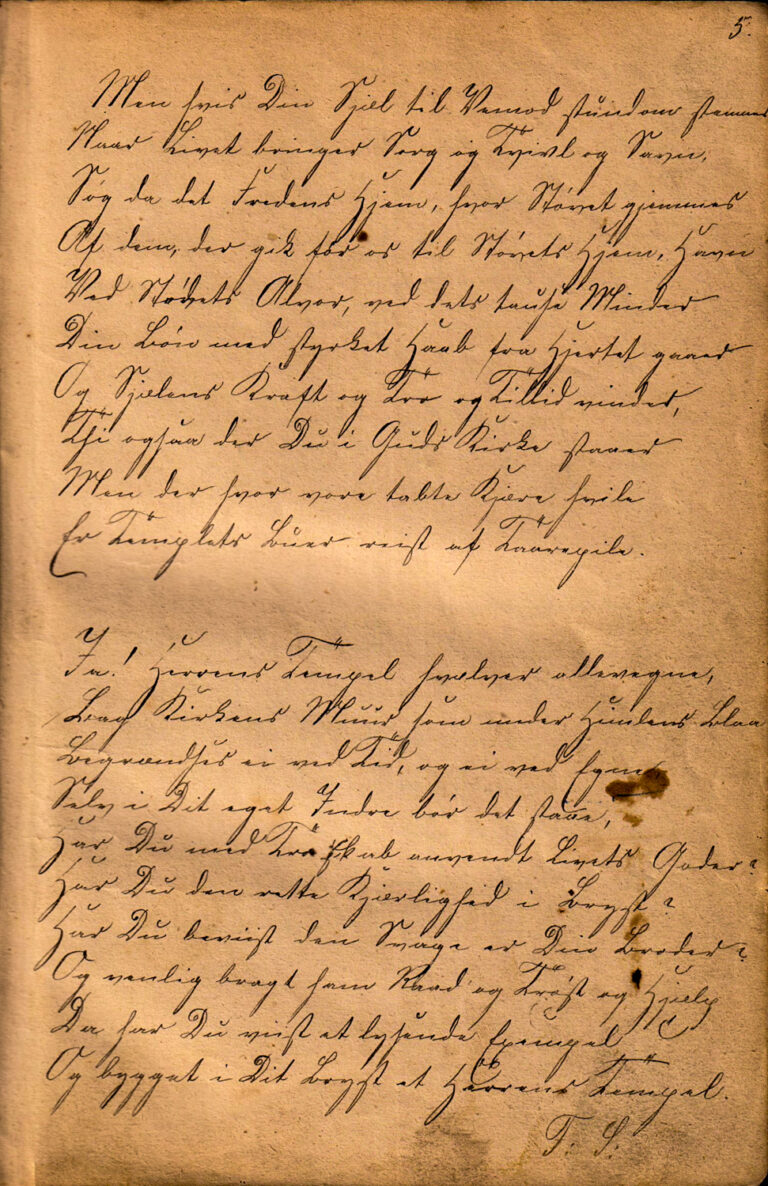 5.
Men hvis Din Sjæl til Vemod stundom stemmes
Naar Livet bringer Sorg og Tvivl og Savn,
Søg da det Fredens Hjem, hvor Støvet gjemmes
Af dem, der gik før os til Støvets Hjem, Havn
Ved Stødets Alvor, ved dets tause Minder
Din Bøn med styrket Haab fra Hjertet gaaer
Og Sjælens Kraft og Tro og Tillid vinder,
Thi ogsaa der Du i Guds Kirke staaer
Men der hvor vore tabte Kjære hvile
Er Templets Buer reist af Taarepile.
Ja! Herrens Tempel hvælver allevegne,
Bag Kirkens Muur, som under Himlens Blaa
Begrændses ei ved Tid, og ei ved Egne
Selv i Dit eget Indre bør det staae,
Har Du med Troskab anvendt Livets Goder?
Har Du den rette Kjærlighed i Bryst?
Har Du beviist den Svage er Din Broder?
Og venlig bragt ham Raad og Trøst og Hjælp
Da har Du viist et lysende Exempel
Og bygget i Dit Bryst et Herrens Tempel.
T. S.